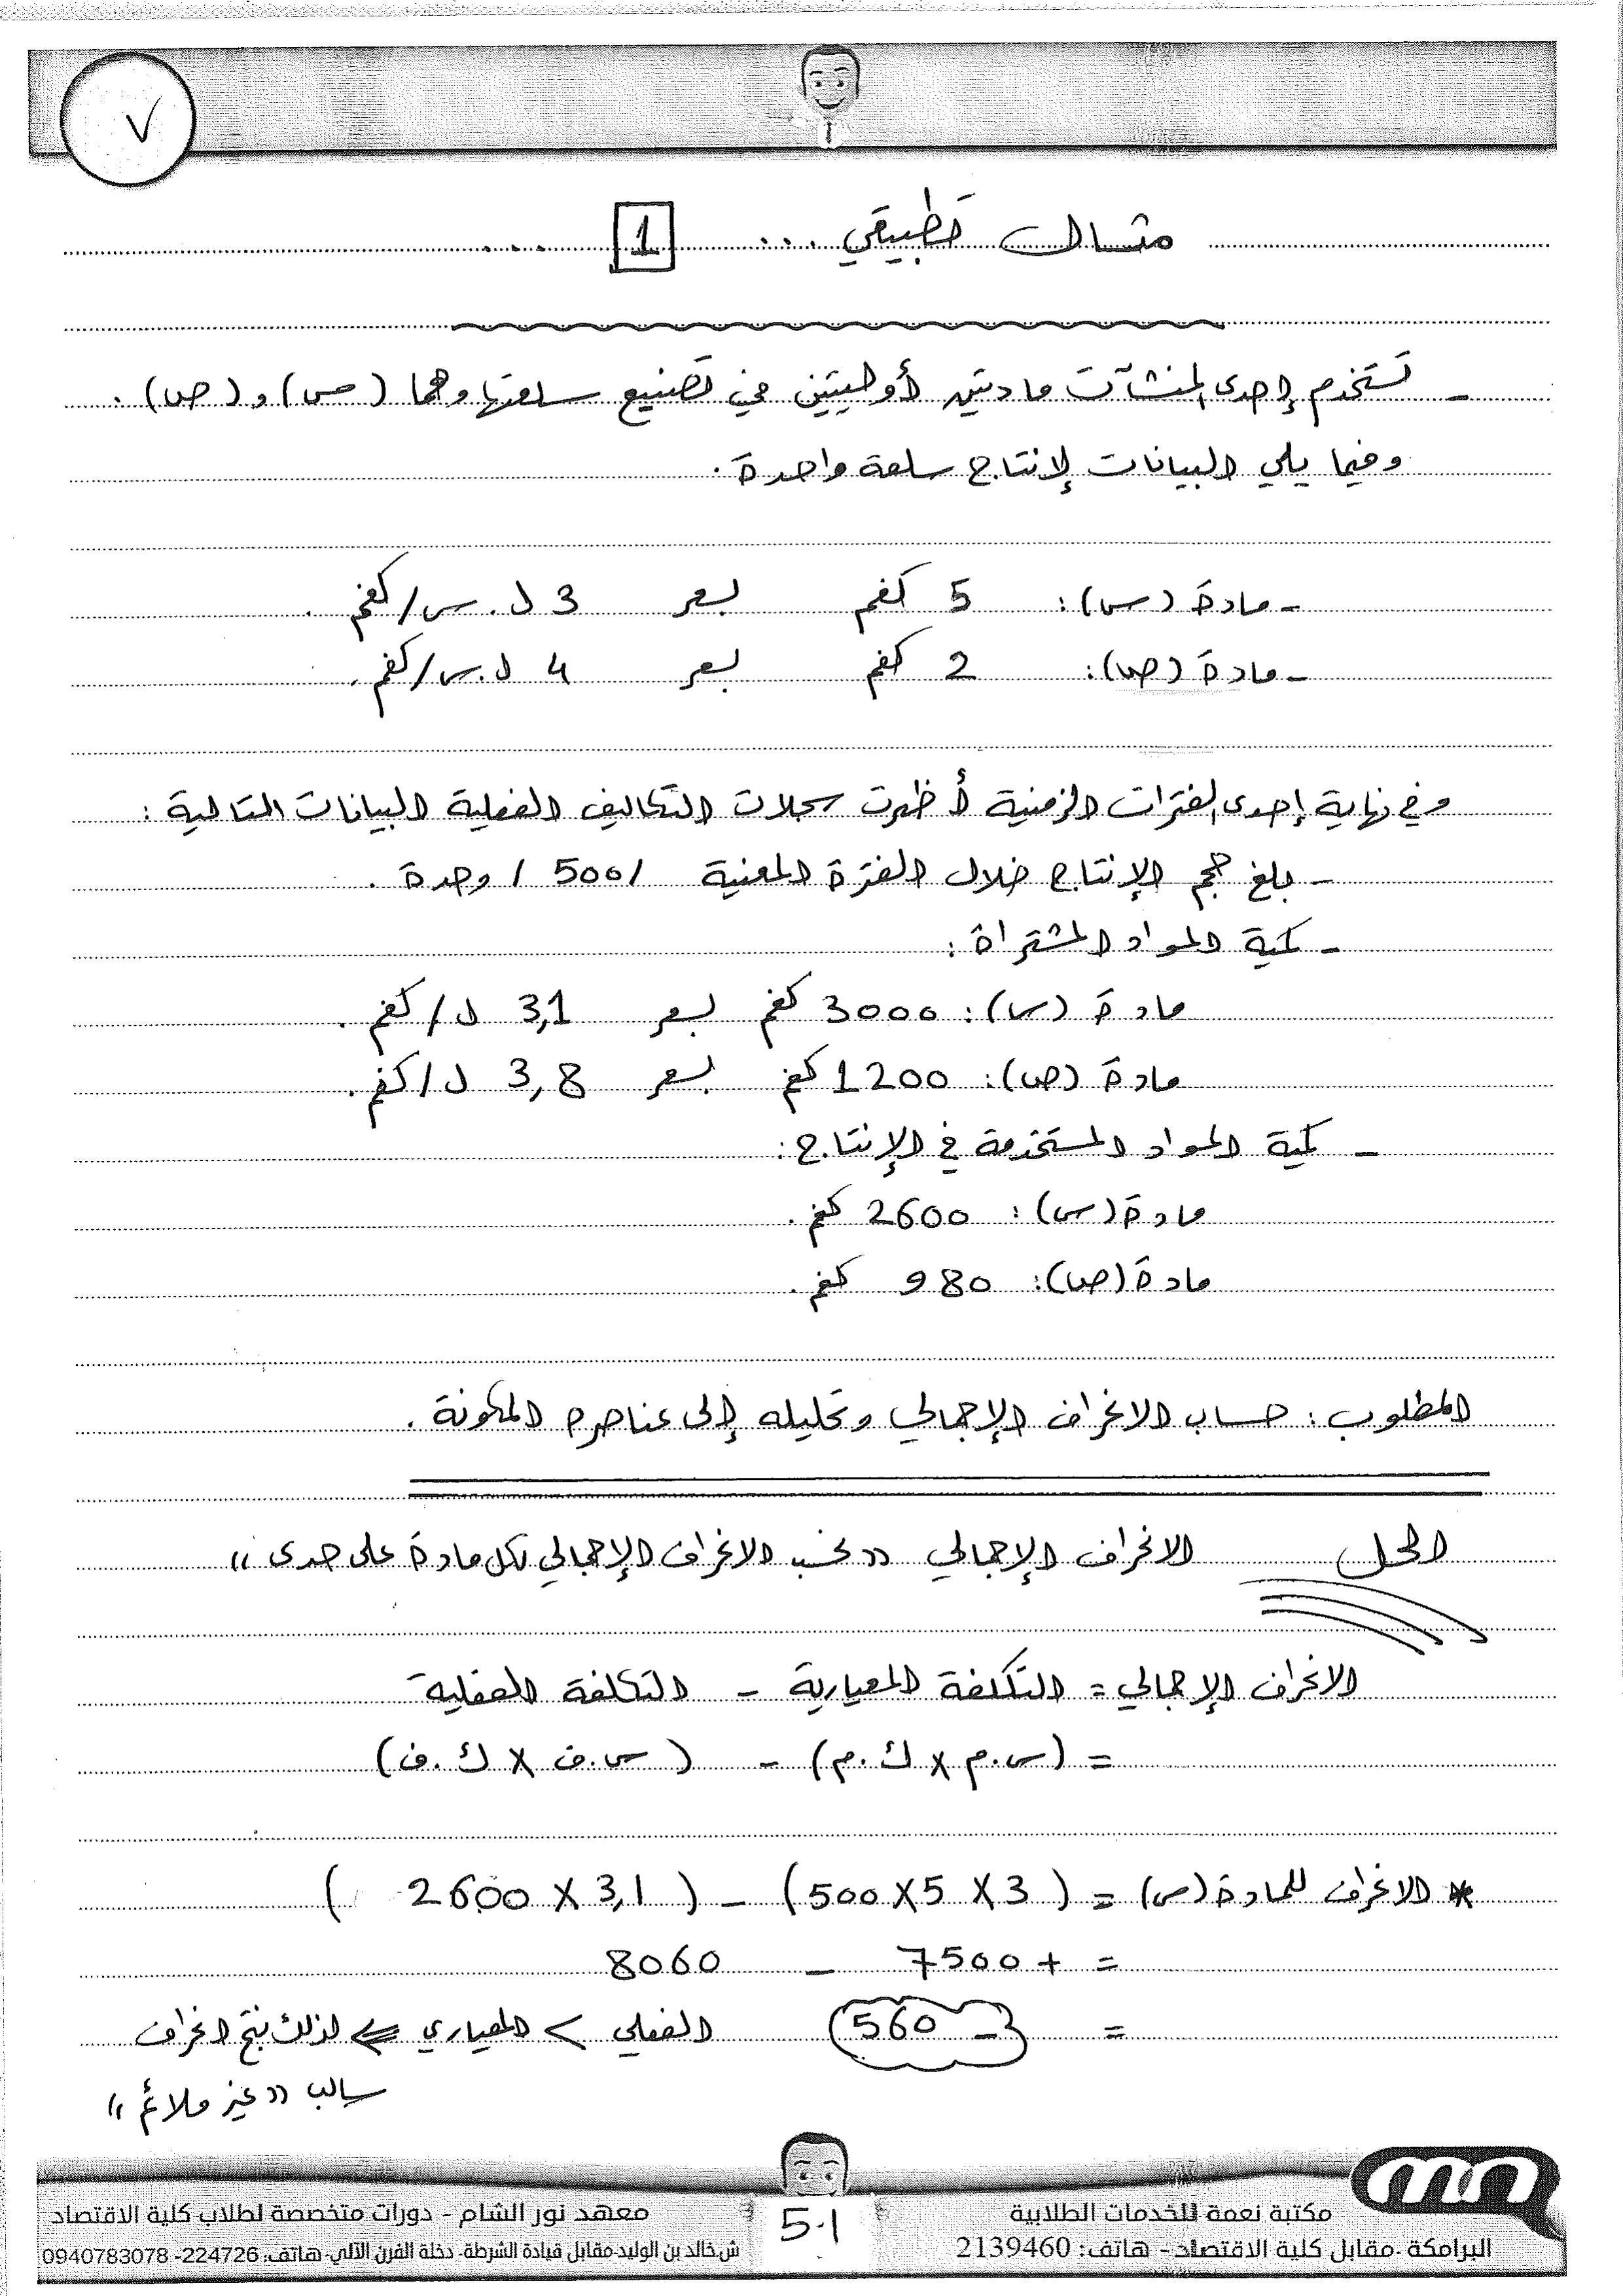 ٧
مثال تطبيقي ... 1 ...
- تستخدم إحدى المنشآت مادتين أوليتين في تصنيع سلعتها وهما (س) و (ص).
وفيما يلي البيانات لإنتاج سلعة واحدة.
- مادة (س): 5 كغم بسعر 3 ل.س/كغم.
- مادة (ص): 2 كغم بسعر 4 ل.س/كغم.
وفي نهاية إحدى الفترات الزمنية أظهرت سجلات التكاليف الفعلية البيانات التالية:
- بلغ حجم الإنتاج خلال الفترة المعنية /500/ وحدة.
- كمية المواد المشتراة:
مادة (س): 3000 كغم بسعر 3,1 ل/كغم.
مادة (ص): 1200 كغ بسعر 3,8 ل/كغم.
- كمية المواد المستخدمة في الإنتاج:
مادة (س): 2600 كغ.
مادة (ص): 980 كغ.
المطلوب: حساب الانحراف الإجمالي وتحليله إلى عناصره المكونة.
الحل الانحراف الإجمالي (( نحسب الانحراف الإجمالي لكل مادة على حدى ))
الانحراف الإجمالي = التكلفة المعيارية - التكلفة الفعلية
= (س.م × ك.م) - (س.ف × ك.ف)
* الانحراف للمادة (س) = (3 × 5 × 500) - (3,1 × 2600)
= +7500 - 8060
= -560 الفعلي > المعياري ⇐ لذلك نتج انحراف
سالب (( غير ملائم ))
مكتبة نعمة للخدمات الطلابية
البرامكة -مقابل كلية الاقتصاد - هاتف: 2139460
5.1
معهد نور الشام - دورات متخصصة لطلاب كلية الاقتصاد
ش.خالد بن الوليد-مقابل قيادة الشرطة- دخلة الفرن الآلي-هاتف: 224726- 0940783078